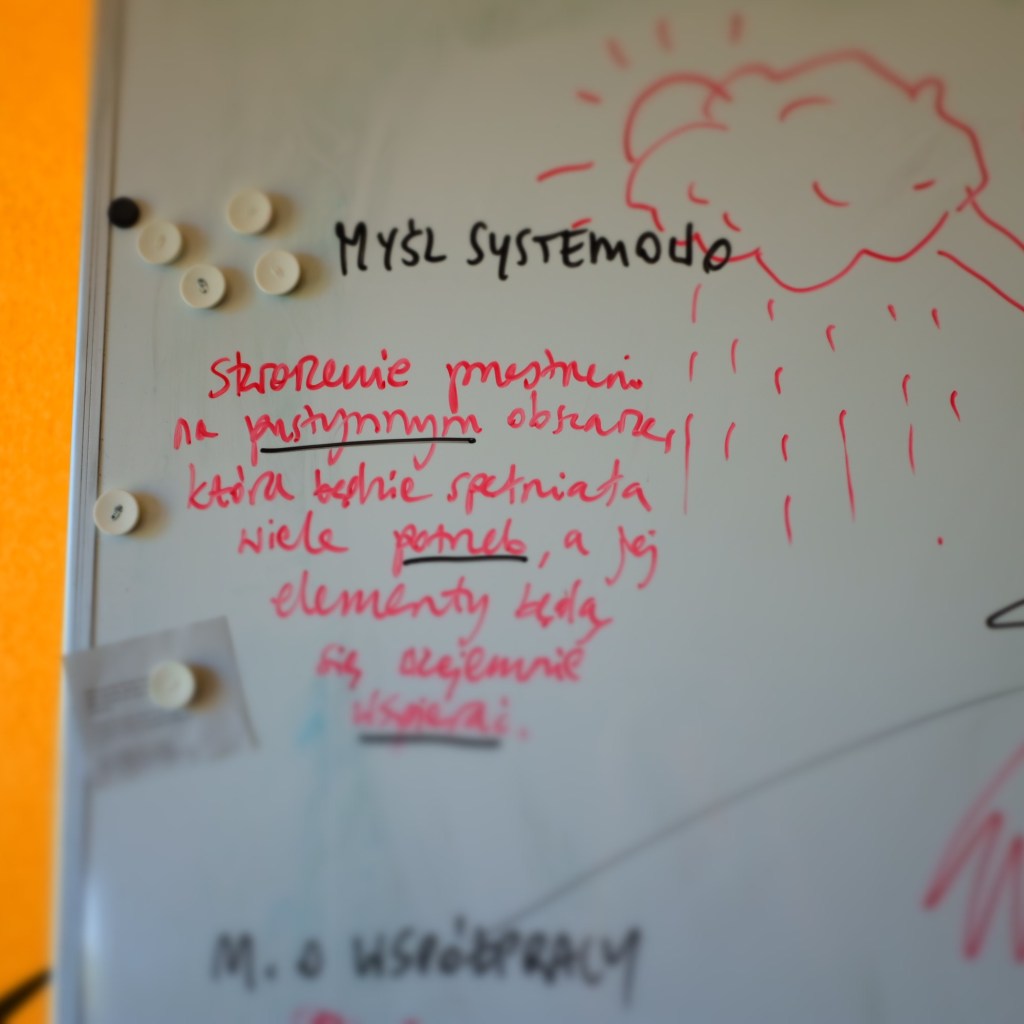 MYŚL SYSTEMOWO
Stworzenie przestrzeni
na pustynnym obszarze,
która będzie spełniała
wiele potrzeb, a jej
elementy będą
się wzajemnie
wspierać.
M. O WSPÓŁPRACY